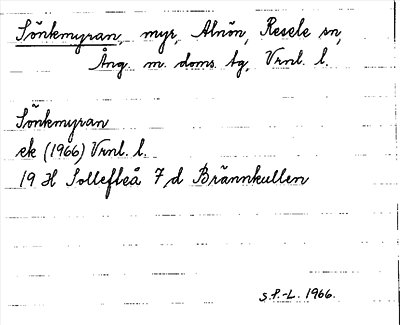 Sönkmyran, myr, Alnön, Resele sn,
Ång. m. doms. tg, Vrnl. l.
Sönkmyran
ek (1966) Vrnl. l.
19 H Sollefteå 7,d Brännkullen
S.F.-L. 1966.